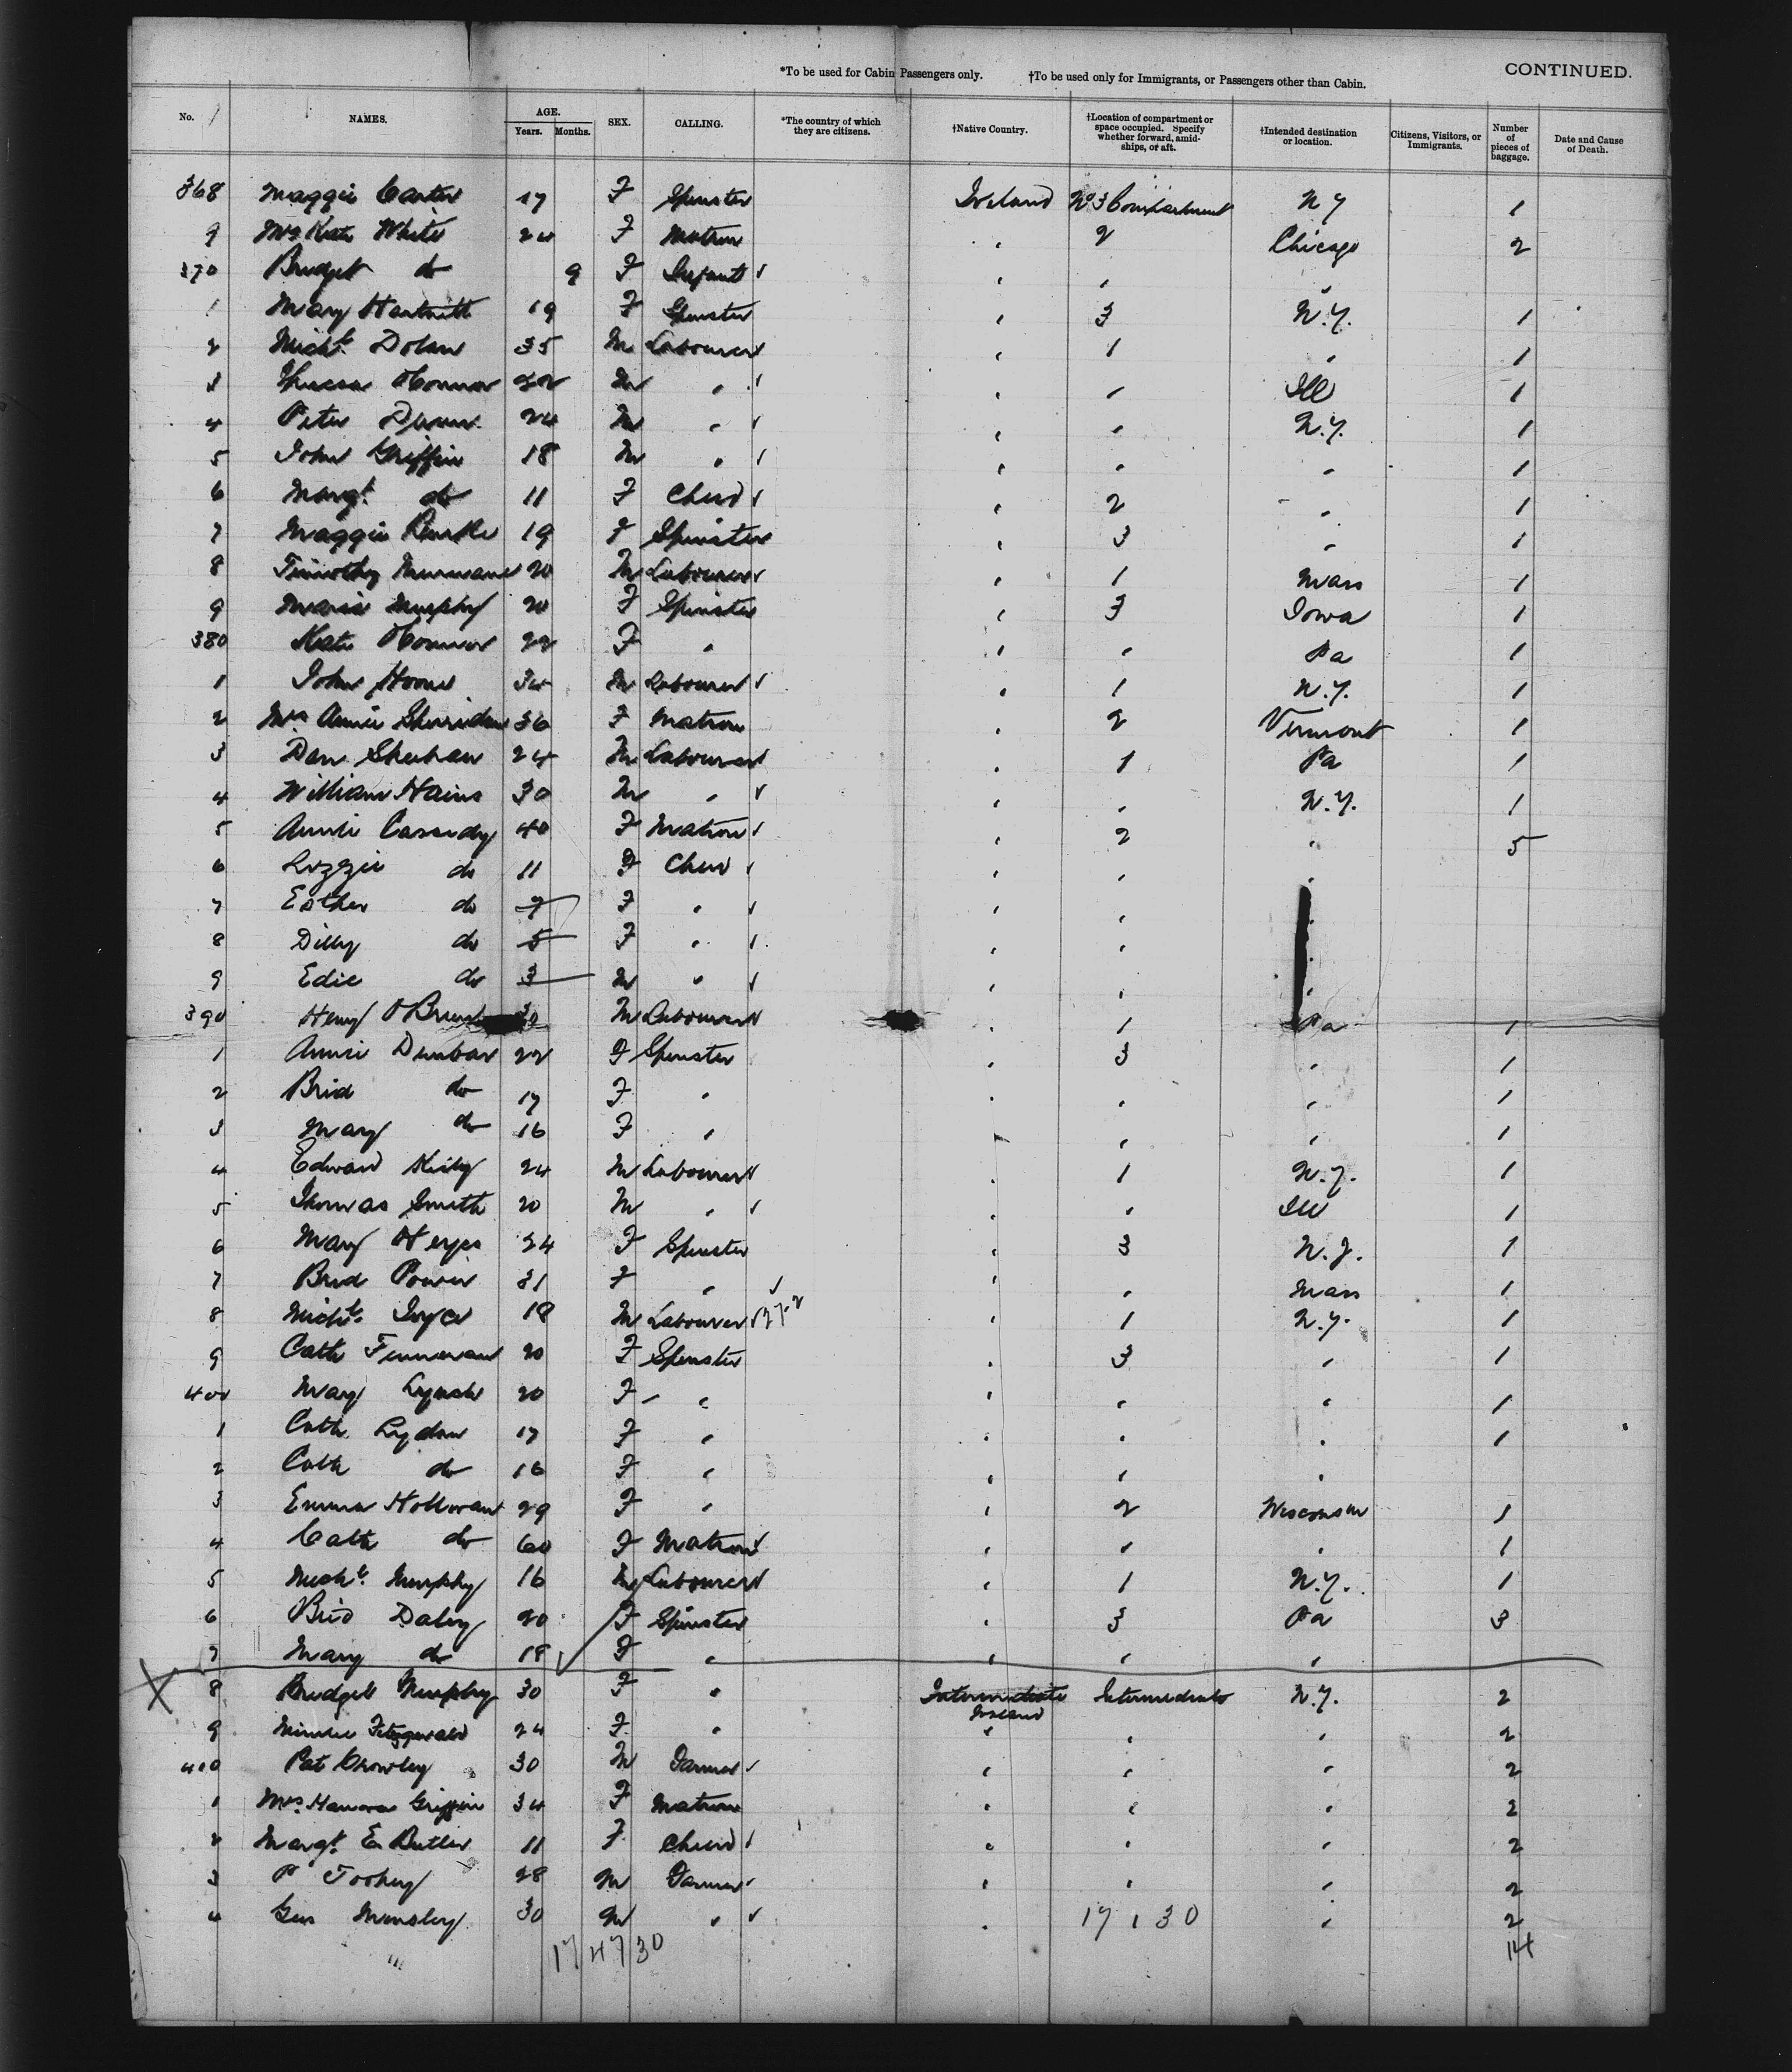 *To be used for Cabin Passengers only. †To be used only for Immigrants, or Passengers other than Cabin. CONTINUED.
No. NAMES. AGE. Years. Months. SEX. CALLING. *The country of which they are citizens. †Native Country. †Location of compartment or space occupied. Specify whether forward, amidships, or aft. †Intended destination or location. Citizens, Visitors, or Immigrants. Number of pieces of baggage. Date and Cause of Death.
368 Maggie Carter 17 F Spinster Ireland No 3 Compartment N Y 1
9 Mrs Kate White 24 F Matron " 2 Chicago 2
370 Bridget do 9 F Infant " " "
1 Mary Hartnett 19 F Spinster " 3 N.Y. 1
2 Michl. Dolan 35 M Labourer " 1 " 1
3 O'Connor 22 M " " " Ill 1
4 Peter 24 M " " " N.Y. 1
5 John Griffin 18 M " " " " 1
6 Margt. do 11 F Child " 2 " 1
7 Maggie Burke 19 F Spinster " 3 " 1
8 Timothy 20 M Labourer " 1 Mass 1
9 Maria Murphy 20 F Spinster " 3 Iowa 1
380 Kate O'Connor 22 F " " " Pa 1
1 John 34 M Labourer " 1 N.Y. 1
2 Mrs Annie Sherridan 36 F Matron " 2 Vermont 1
3 Dan Sheehan 24 M Labourer " 1 Pa 1
4 William Hains 30 M " " " N.Y. 1
5 Annie Cassidy 40 F Matron " 2 " 5
6 Lizzie do 11 F Child " " "
7 Esther do 7 F " " " "
8 Dilly do 5 F " " " "
9 Edie do 3 M " " " "
390 Henry O'Brien 30 M Labourer " 1 Pa 1
1 Annie Dunbar 22 F Spinster " 3 " 1
2 Brid do 17 F " " " " 1
3 Mary do 16 F " " " " 1
4 Edward Kiely 24 M Labourer " 1 N.Y. 1
5 Thomas Smith 20 M " " " Ill 1
6 Mary Heyes 24 F Spinster " 3 N.J. 1
7 Brid Power 31 F " " " Mass 1
8 Michl. Joyce 18 M Labourer " 1 N.Y. 1
9 Cath 20 F Spinster " 3 " 1
400 Mary Lynch 20 F " " " " 1
1 Cath Lydon 17 F " " " " 1
2 Cath do 16 F " " " "
3 Emma Holloran 29 F " " 2 Wisconsin 1
4 Cath do 60 F Matron " " " 1
5 Michl. Murphy 16 M Labourer " 1 N.Y. 1
6 Brid Daley 20 F Spinster " 3 Pa 3
7 Mary do 18 F " " " "
X 8 Bridget Murphy 30 F " Intermediate Ireland Intermediate N.Y. 2
9 Minnie Fitzgerald 24 F " " " " 2
410 Pat Crowley 30 M Farmer " " " 2
1 Mrs Hanora Griffin 34 F Matron " " " 2
2 Margt. E Butler 11 F Child " " " 2
3 P Toohey 28 M Farmer " " " 2
4 Geo 30 M " " 17 1 30 " 2
17 47 30 14